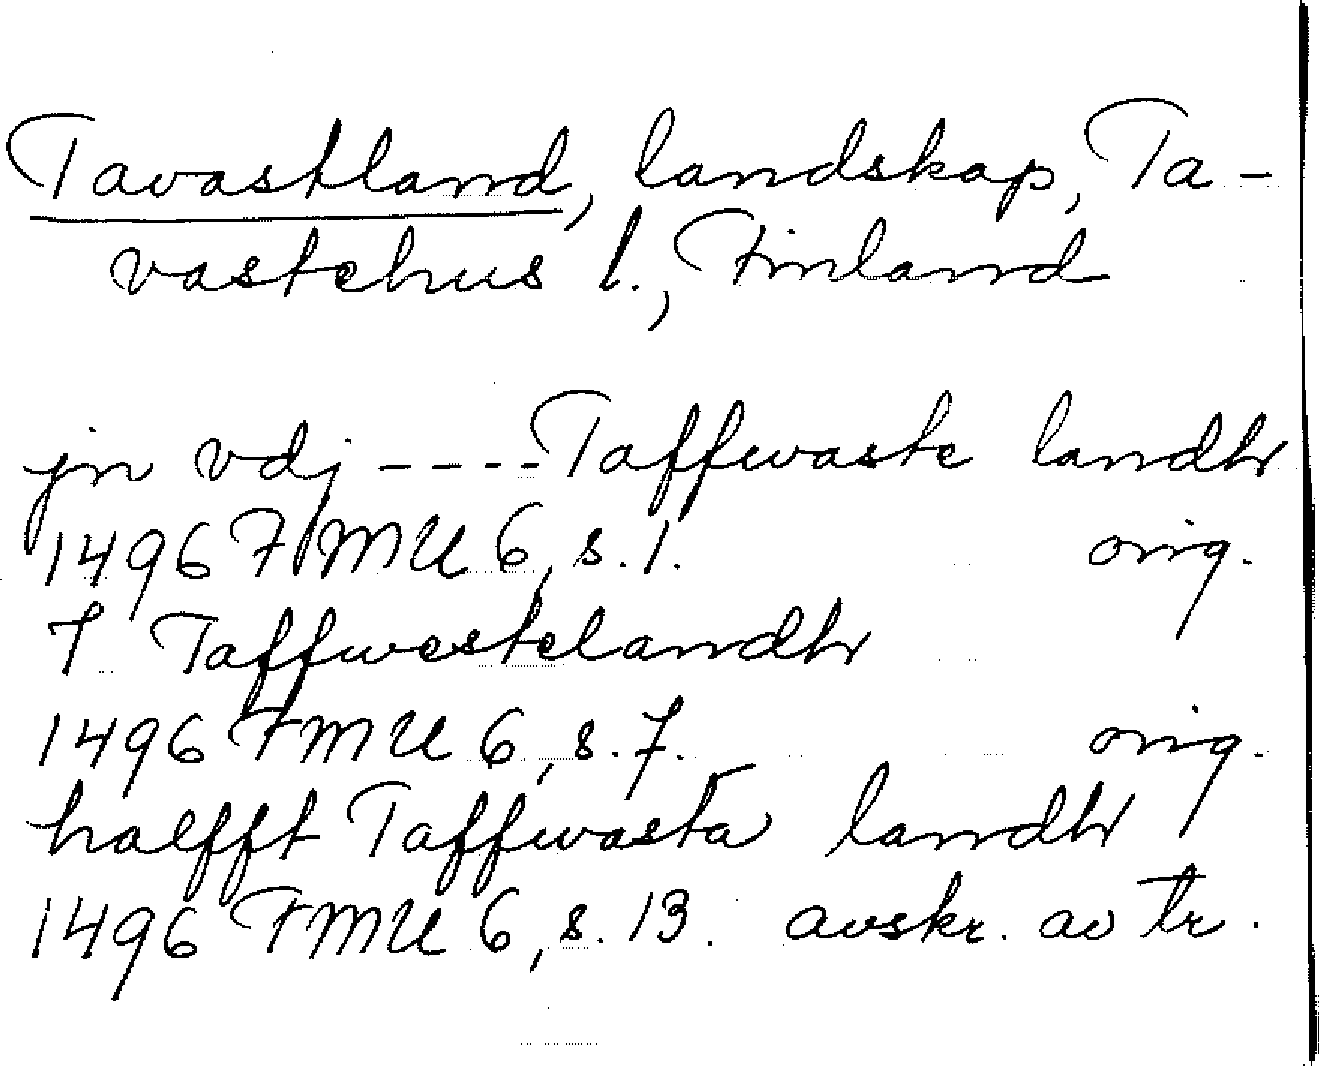 Tavastland, landskap, Ta-
vastehus l., Finland
jn vdj ----Taffwaste landh
1496 FMU 6, s. 1. orig.
J Taffwestelandh
1496 FMU 6, s. 7. orig.
halfft Taffwasta landh
1496 FMU 6, s. 13. avskr. av tr.